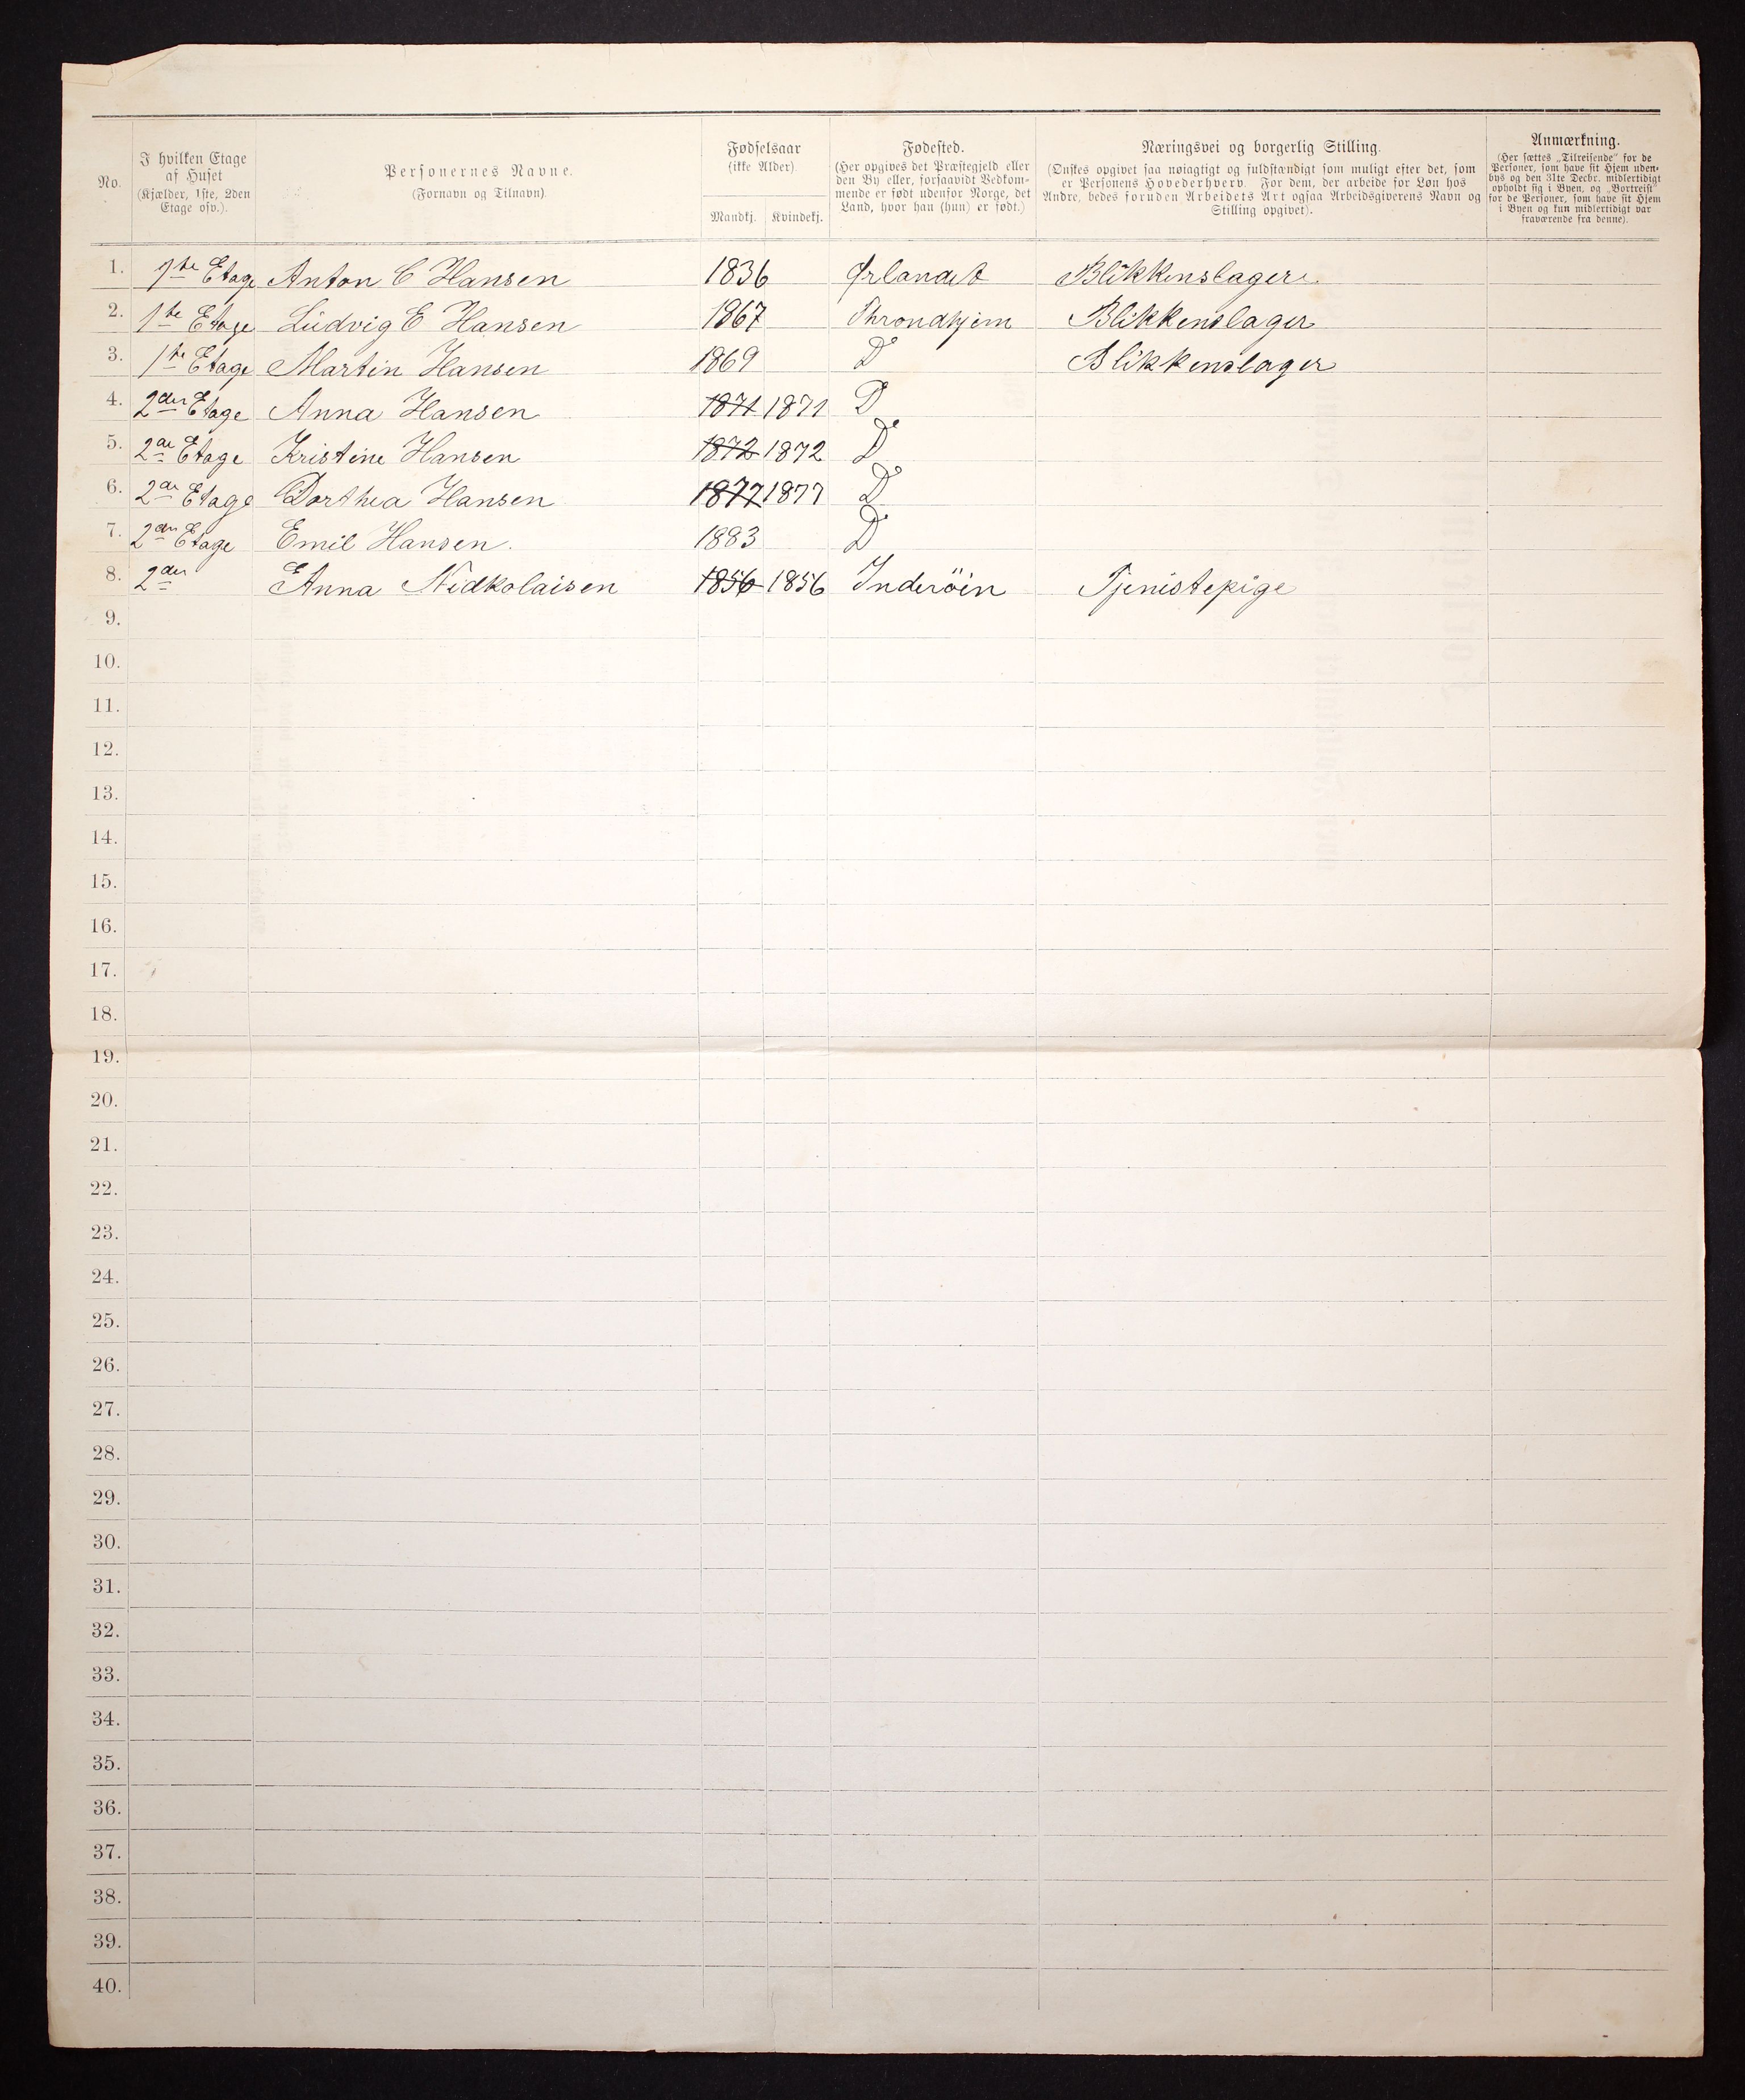 No.
I hvilken Etage
af Huset
(Kjælder, 1ste, 2den
Etage osv.).
Personernes Navne.
(Fornavn og Tilnavn).
Fødselsaar
(ikke Alder).
Mandkj.
Kvindekj.
Fødested.
(Her opgives det Præstegjeld eller
den By eller, forsaavidt Vedkom-
mende er født udenfor Norge, det
Land, hvor han (hun) er født.)
Næringsvei og borgerlig Stilling.
(Ønskes opgivet saa nøiagtigt og fuldstændigt som muligt efter det, som
er Personens Hovederhverv. For dem, der arbeide for Løn hos
Andre, bedes foruden Arbeidets Art ogsaa Arbeidsgiverens Navn og
Stilling opgivet).
Anmærkning.
(Her sættes „Tilreisende" for de
Personer, som have sit Hjem uden-
bys og den 31te Decbr. midlertidigt
opholdt sig i Byen, og „Bortreist"
for de Personer, som have sit Hjem
i Byen og kun midlertidigt var
fraværende fra denne).
1. 1te Etage Anton C Hansen 1836 Ørlandet Blikkenslager
2. 1te Etage Ludvig E Hansen 1867 Throndhjem Blikkenslager
3. 1te Etage Martin Hansen 1869 Do Blikkenslager
4. 2den Etage Anna Hansen 1871 1871 Do
5. 2de Etage Kristine Hansen 1872 1872 Do
6. 2de Etage Dorthea Hansen 1877 1877 Do
7. 2den Etage Emil Hansen. 1883 Do
8. 2den E Anna Nidkolaisen 1856 1856 Inderöin Tjenistepige
9.
10.
11.
12.
13.
14.
15.
16.
17.
18.
19.
20.
21.
22.
23.
24.
25.
26.
27.
28.
29.
30.
31.
32.
33.
34.
35.
36.
37.
38.
39.
40.